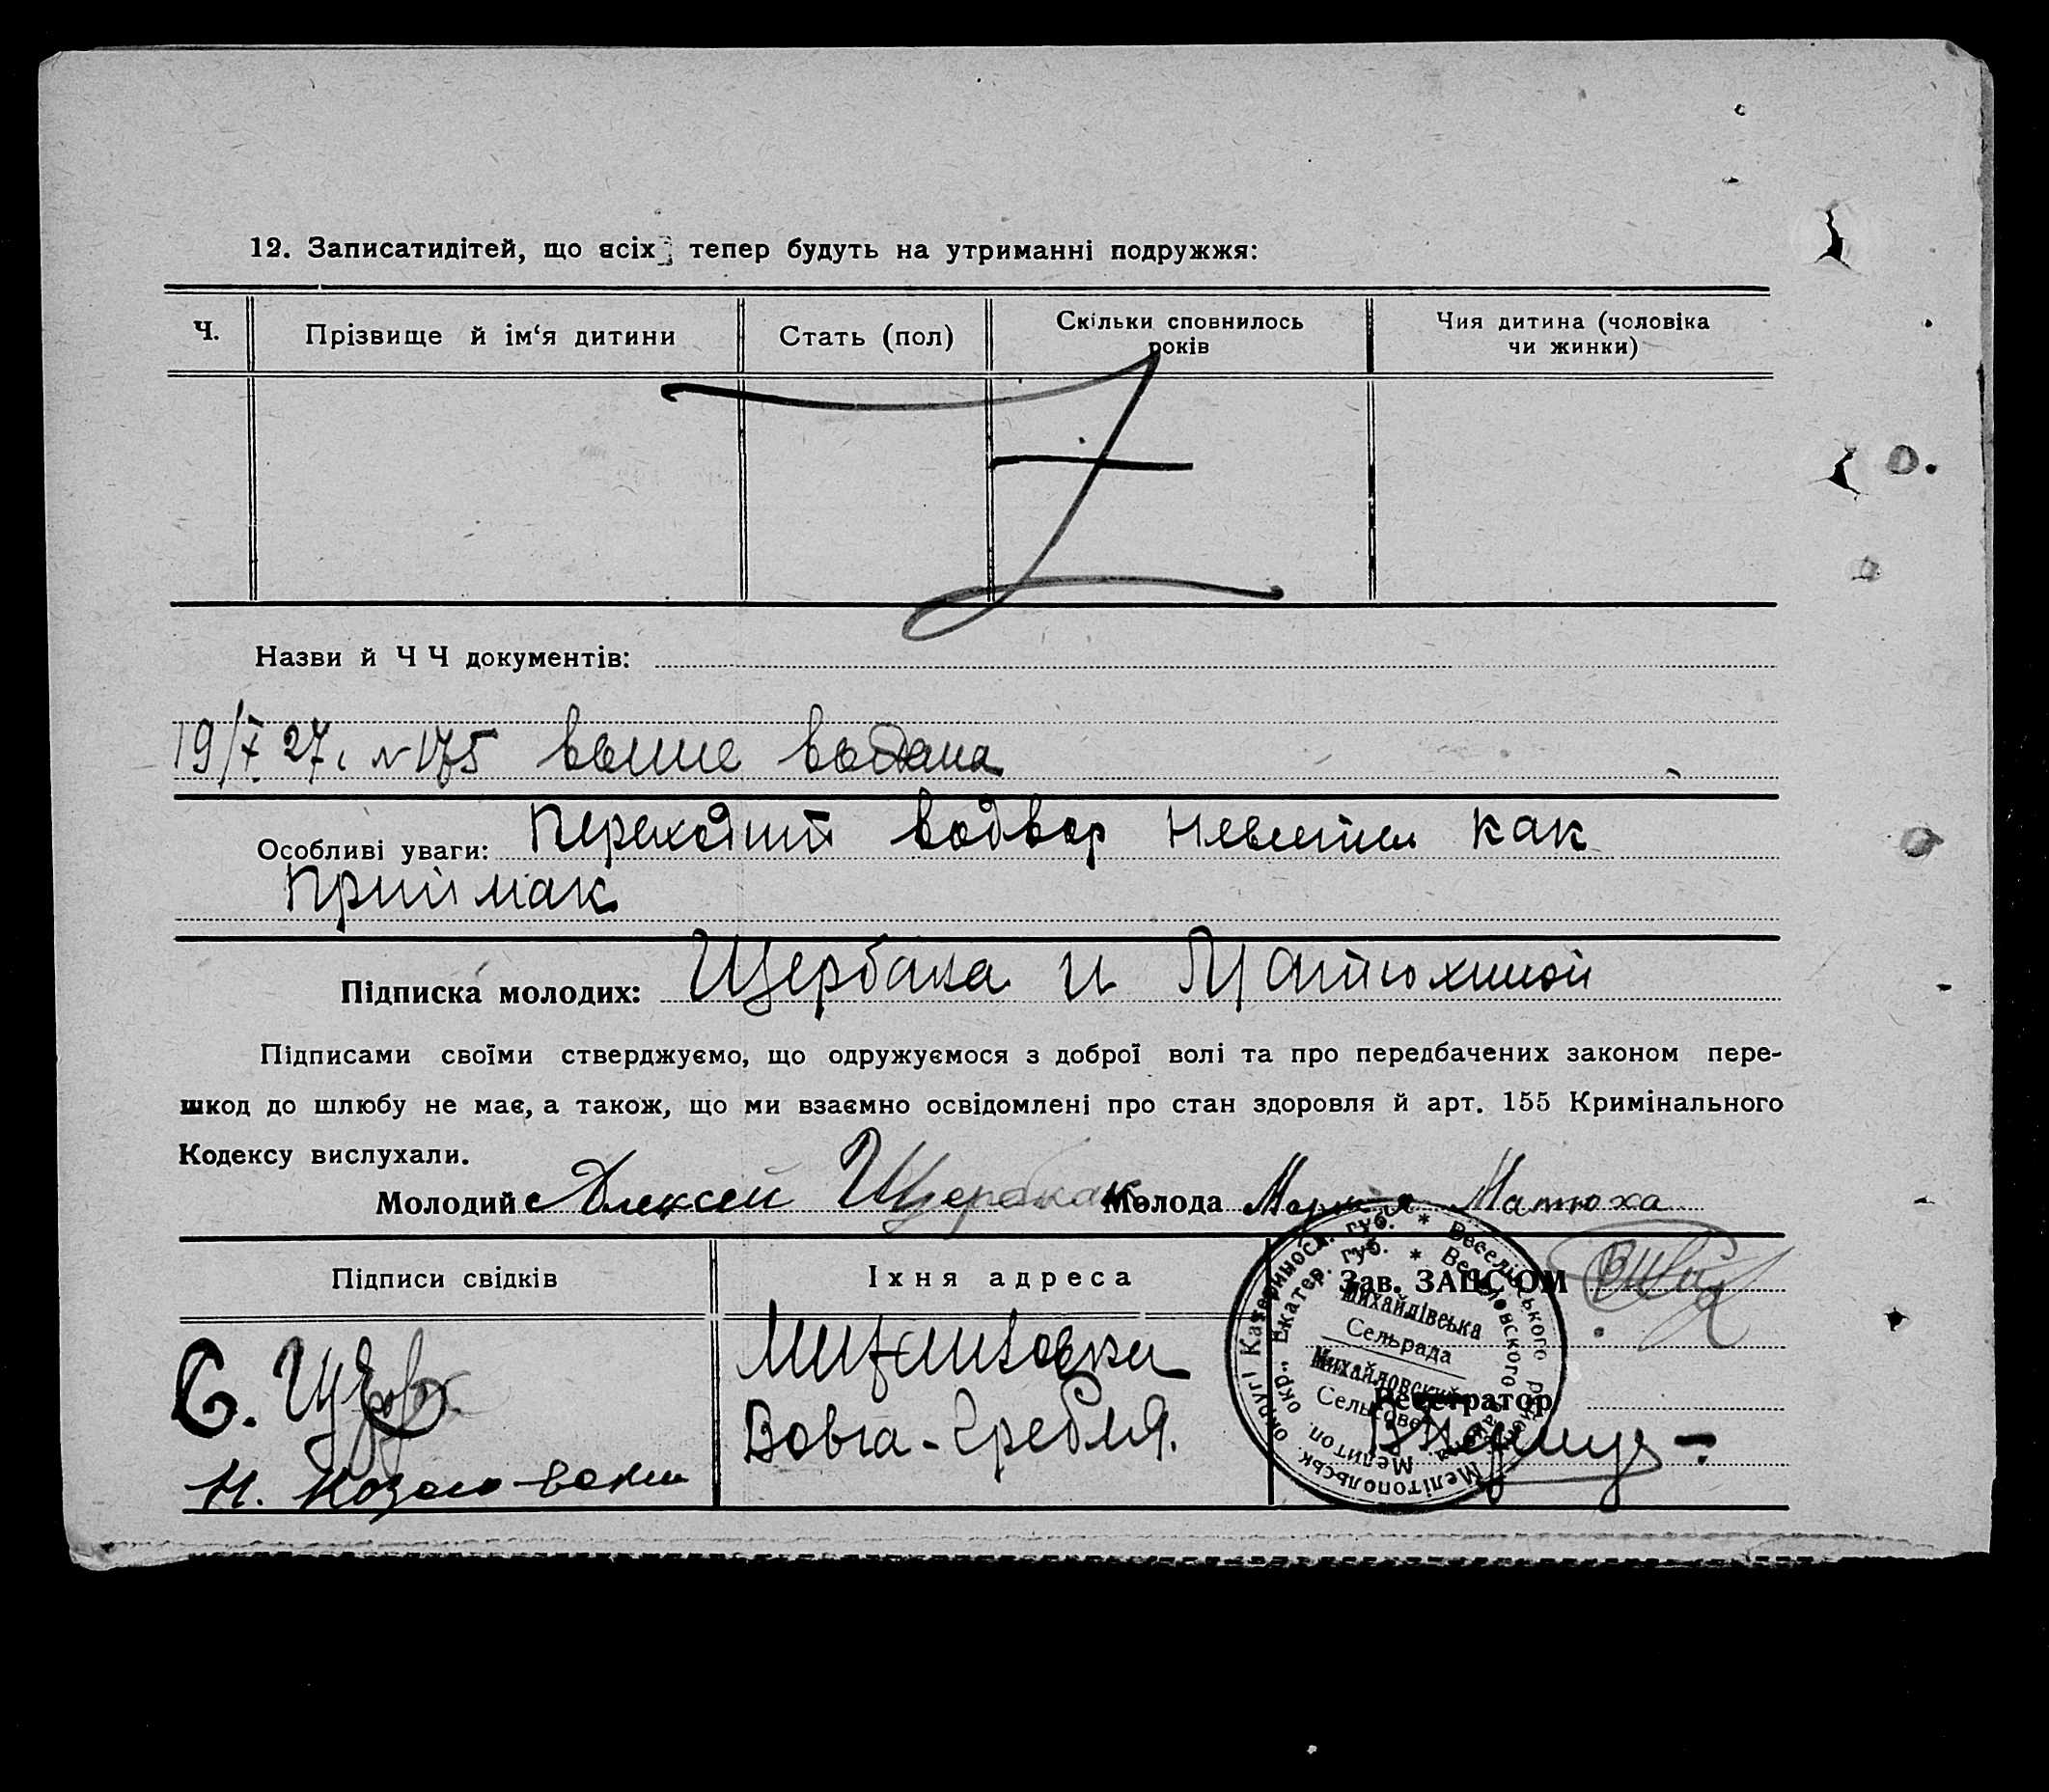 12. Записатидітей, що всіх тепер будуть на утриманні подружжя:
Ч.
Прізвище й ім‘я дитини
Стать (пол)
Скільки сповнилось
років
Чия дитина (чоловіка
чи жинки)
Назви й Ч Ч документів:
19/X 27г № 175 выше выдана
Особливі уваги: Переходит водвор Невести как
Приймак
Підписка молодих: Щербака и Матюхиной
Підписами своїми стверджуємо, що одружуємося з доброї волі та про передбачених законом пере-
шкод до шлюбу не має, а також, що ми взаємно освідомлені про стан здоровля й арт. 155 Кримінального
Кодексу вислухали.
Молодий Алексей Щербак Молода Мария Матюха
Підписи свідків
Їхня адреса
Зав. ЗАЦС‘ОМ
С.
Н.
Михайловка
Вовча-Гребля.
Реєстратор
Мелітопольськ. округі Катериносл. губ. * Веселівського району
Мелитоп. окр. Екатер. губ. * Веселовского района
Михайлівська
Сельрада
Михайловский
Сельсовет